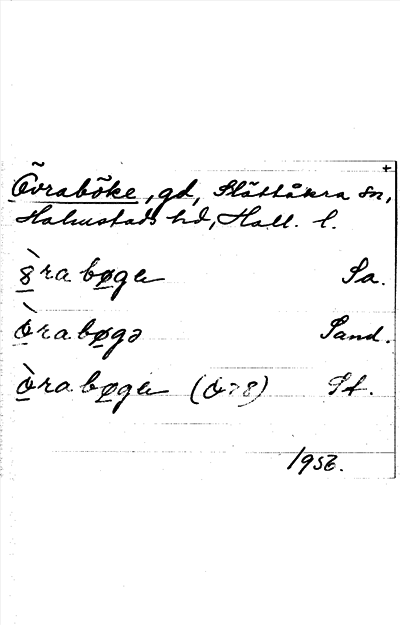 +
Övraböke, gd, Slättåkra sn,
Halmstads hd, Hall. l.
8̀ra bøga Sa.
ò̱ra bøgə Sand.
ò̱ra bøga (ò>8) St.
1956.